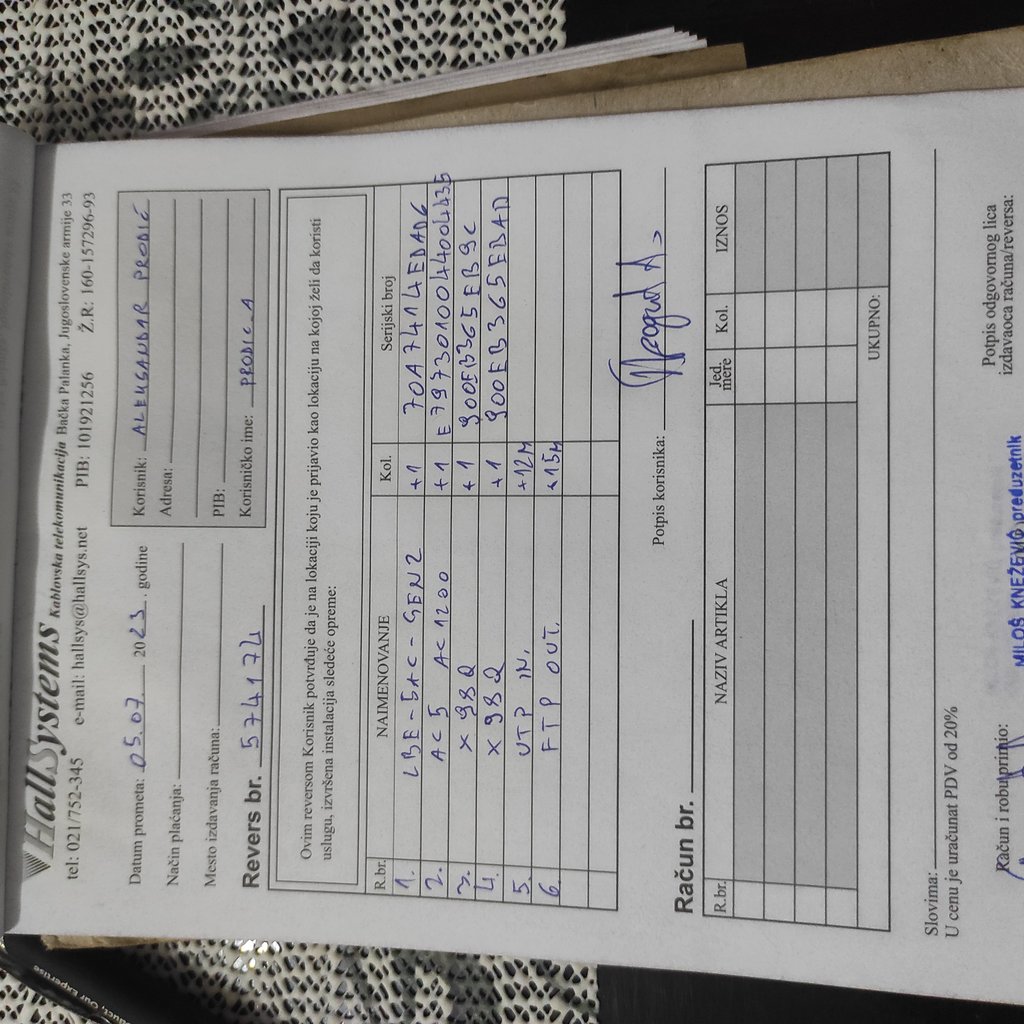 HallSystems Kablovska telekomunikacija Bačka Palanka, Jugoslovenske armije 33
tel: 021/752-345 e-mail: hallsys@hallsys.net PIB: 101921256 Ž.R: 160-157296-93
Datum prometa: 05.07. 2023. godine
Način plaćanja:
Mesto izdavanja računa:
Revers br. 574174
Korisnik: ALEKSANDAR PRODIĆ
Adresa:
PIB:
Korisničko ime: PRODIC.A
Ovim reversom Korisnik potvrđuje da je na lokaciji koju je prijavio kao lokaciju na kojoj želi da koristi
uslugu, izvršena instalacija sledeće opreme:
R.br. NAIMENOVANJE Kol. Serijski broj
1. LBE-5AC-GEN2 +1 70A7414EDAD6
2. AC5 AC1200 +1 E7973010044004435
3. X98Q +1 900EB365EB9C
4. X98Q +1 900EB365EBAD
5. UTP IN. +12M
6. FTP OUT. +15M
Potpis korisnika:
Račun br.
R.br. NAZIV ARTIKLA Jed. mere Kol. IZNOS
UKUPNO:
Slovima:
U cenu je uračunat PDV od 20%
Račun i robu primio:
MILOŠ KNEŽEVIĆ preduzetnik
Potpis odgovornog lica
izdavaoca računa/reversa: